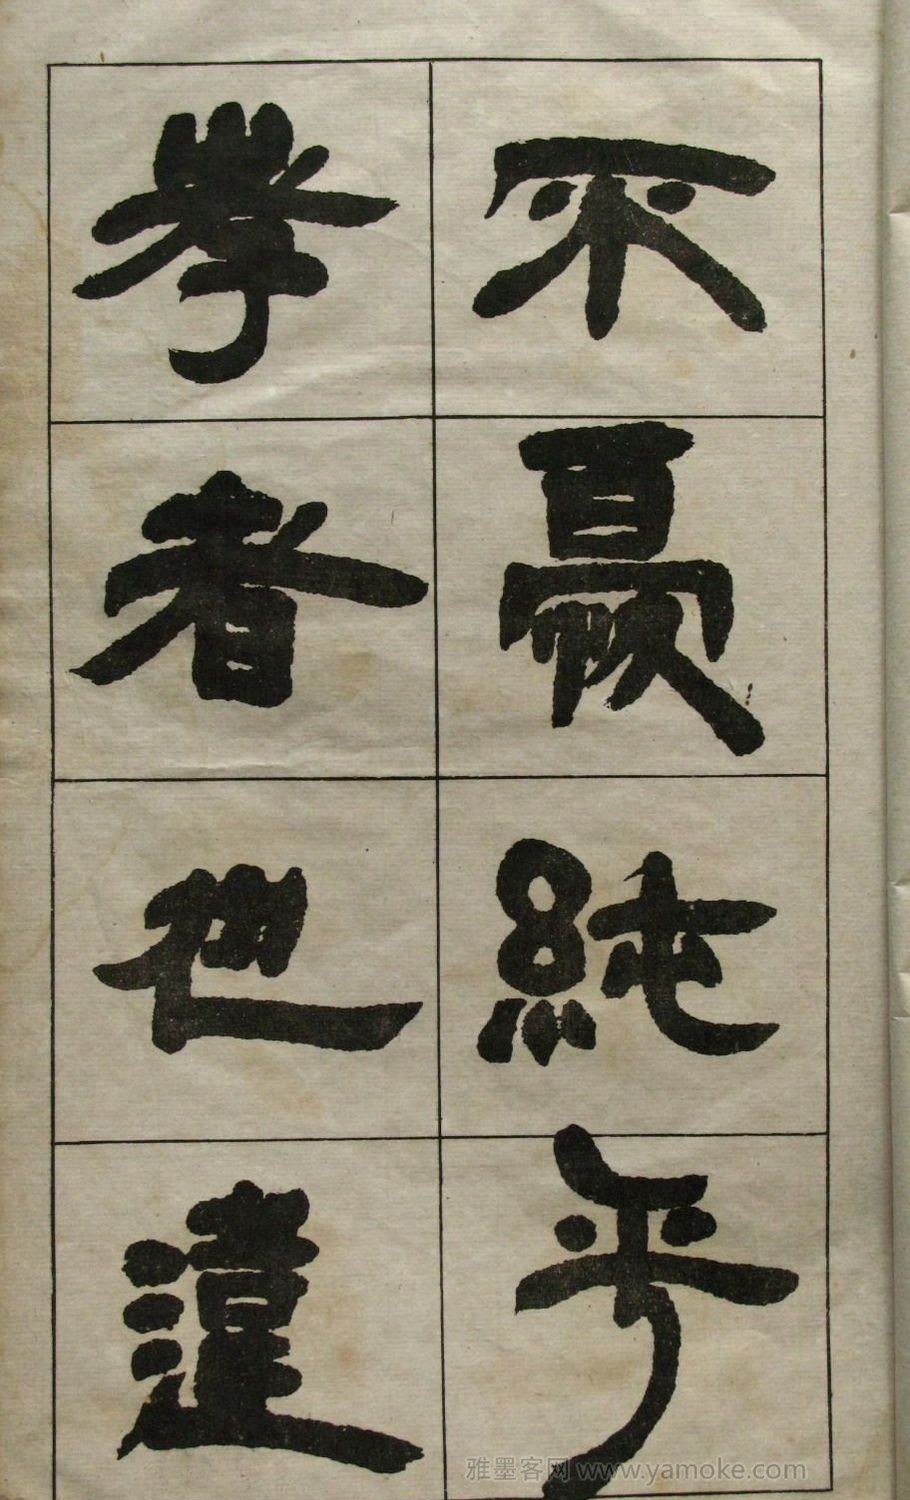 不憂純乎
孝者也違
雅墨客网 www.yamoke.com